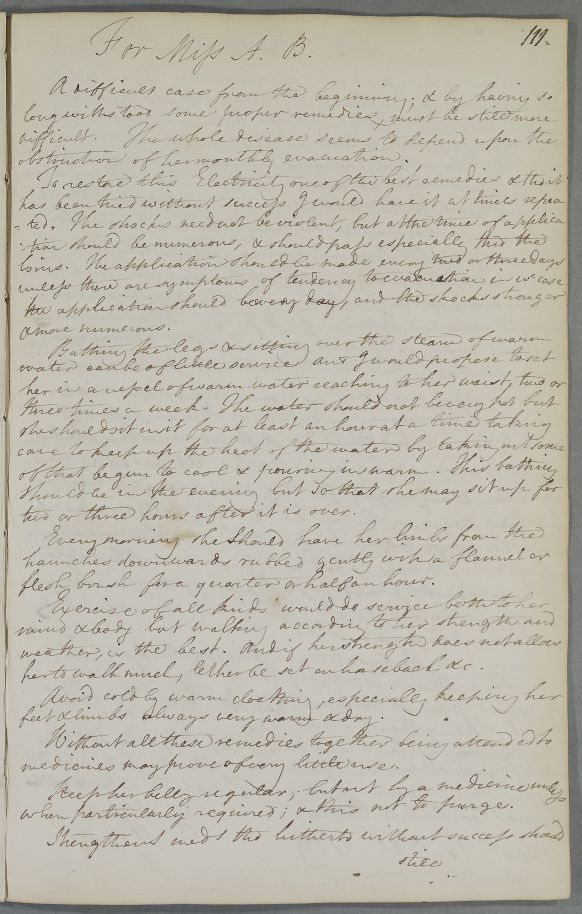 For Miss A. B.
111.
A difficult case from the begining; & by having so
long withstood some proper remedies, must be still more
difficult. The whole disease seems to depend upon the
obstruction of her monthly evacuation.
To restore this Electricity one of the best remedies & tho it
has been tried without success I would have it at times repea
-ted. The shocks need not be violent, but at the time of applica
-tion should be numerous, & should pass especially thro the
loins. The application should be made every two or three days
unless there are symptoms of tendency to evacuation in wc case
the application should be every day, and the shocks stronger
& more numerous.
Bathing the legs & sitting over the steam of warm
water can be of little service and I would propose to set
her in a vessel of warm water reaching to her waist, two or
three times a week. The water should not be very hot but
she should sit in it for at least an hour at a time taking
care to keep up the heat of the water by taking out some
of that begun to cool & pouring in warm. This bathing
should be in the evening but so that she may sit up for
two or three hours after it is over.
Every morning she should have her limbs from the
haunches downwards rubbed gently with a flannel or
flesh brush for a quarter or half an hour.
Exercise of all kinds would do service both to her
mind & body but walking according to her strength and
weather, is the best. And if her strength does not allow
her to walk much, let her be set on horseback &c.
Avoid cold by warm cloathing, especially keeping her
feet & limbs always very warm & dry.
Without all these remedies together being attended to
medicines may prove of very little use.
Keep her belly regular; but not by a medicine unless
when particularly required; & this not to purge.
Strengthens meds tho hitherto without success should
still